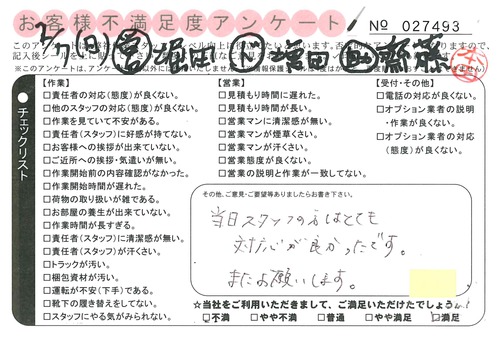 お客様不満足度アンケート
No 027493
2/7(日) 営 堀田 N 増田 齋藤
【作業】
□責任者の対応(態度)が良くない。
□他のスタッフの対応(態度)が良くない。
□作業を見ていて不安がある。
□責任者(スタッフ)に好感が持てない。
□お客様への挨拶が出来ていない。
□ご近所への挨拶・気遣いが無い。
□作業開始前の内容確認がなかった。
□作業開始時間が遅れた。
□荷物の取り扱いが雑である。
□お部屋の養生が出来ていない。
□作業時間が長すぎる。
□責任者(スタッフ)に清潔感が無い。
□責任者(スタッフ)が汗くさい。
□トラックが汚い。
□梱包資材が汚い。
□運転が不安(下手)である。
□靴下の履き替えをしてない。
□スタッフにやる気がみられない。
【営業】
□見積もり時間に遅れた。
□見積もり時間が長い。
□営業マンに清潔感が無い。
□営業マンが煙草くさい。
□営業マンが汗くさい。
□営業態度が良くない。
□営業の説明と作業が一致してない。
【受付・その他】
□電話の対応が良くない。
□オプション業者の説明
・作業が良くない。
□オプション業者の対応
(態度)が良くない。
チェックリスト
その他、ご意見・ご要望等ありましたらお書き下さい。
当日スタッフの方はとても
対応が良かったです。
またお願いします。
☆当社をご利用いただきまして、ご満足いただけたでしょうか
□不満 □やや不満 □普通 □やや満足 □満足